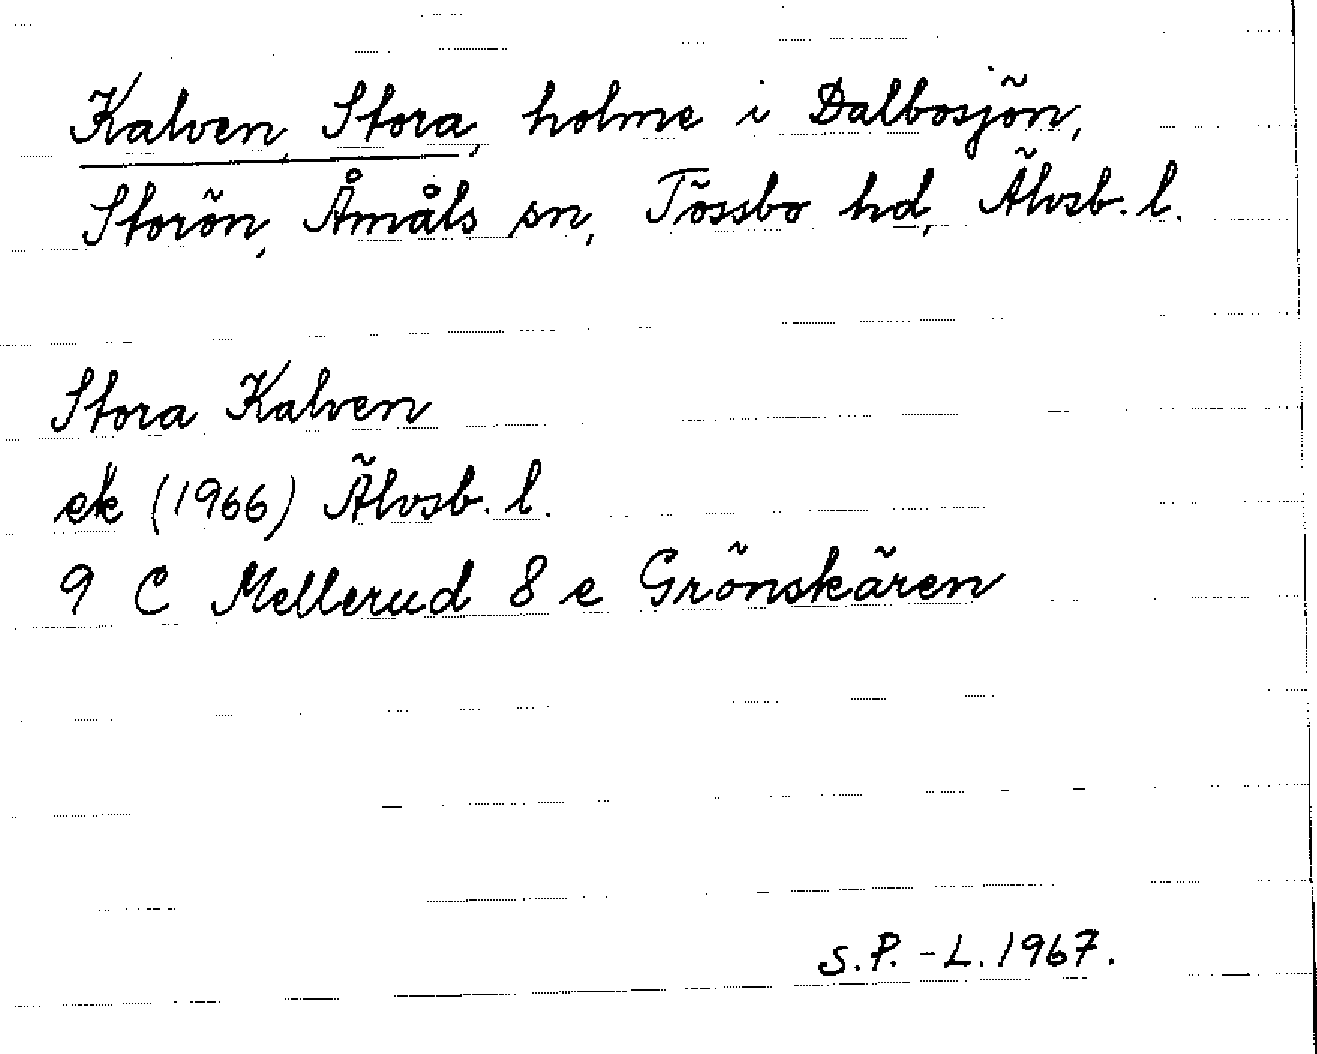 Kalven, Stora, holme i Dalbosjön,
Storön, Åmåls sn, Tössbo hd, Älvsb. l.
Stora Kalven
ek (1966) Älvsb. l.
9 C Mellerud 8 e Grönskären
S.P.-L. 1967.